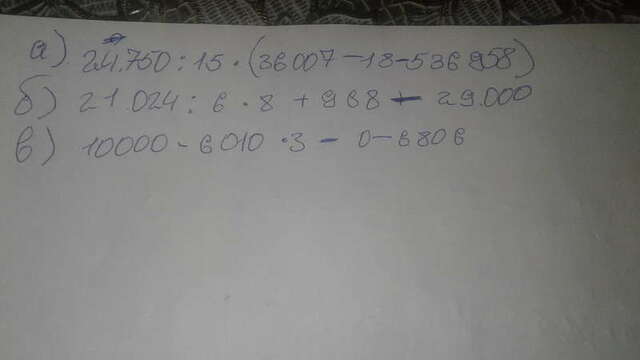 а) 24.750 : 15 · (36007 - 18 - 536 958)
б) 21.024 : 6 · 8 + 968 - 29.000
в) 10000 - 6010 · 3 - 0 - 6806